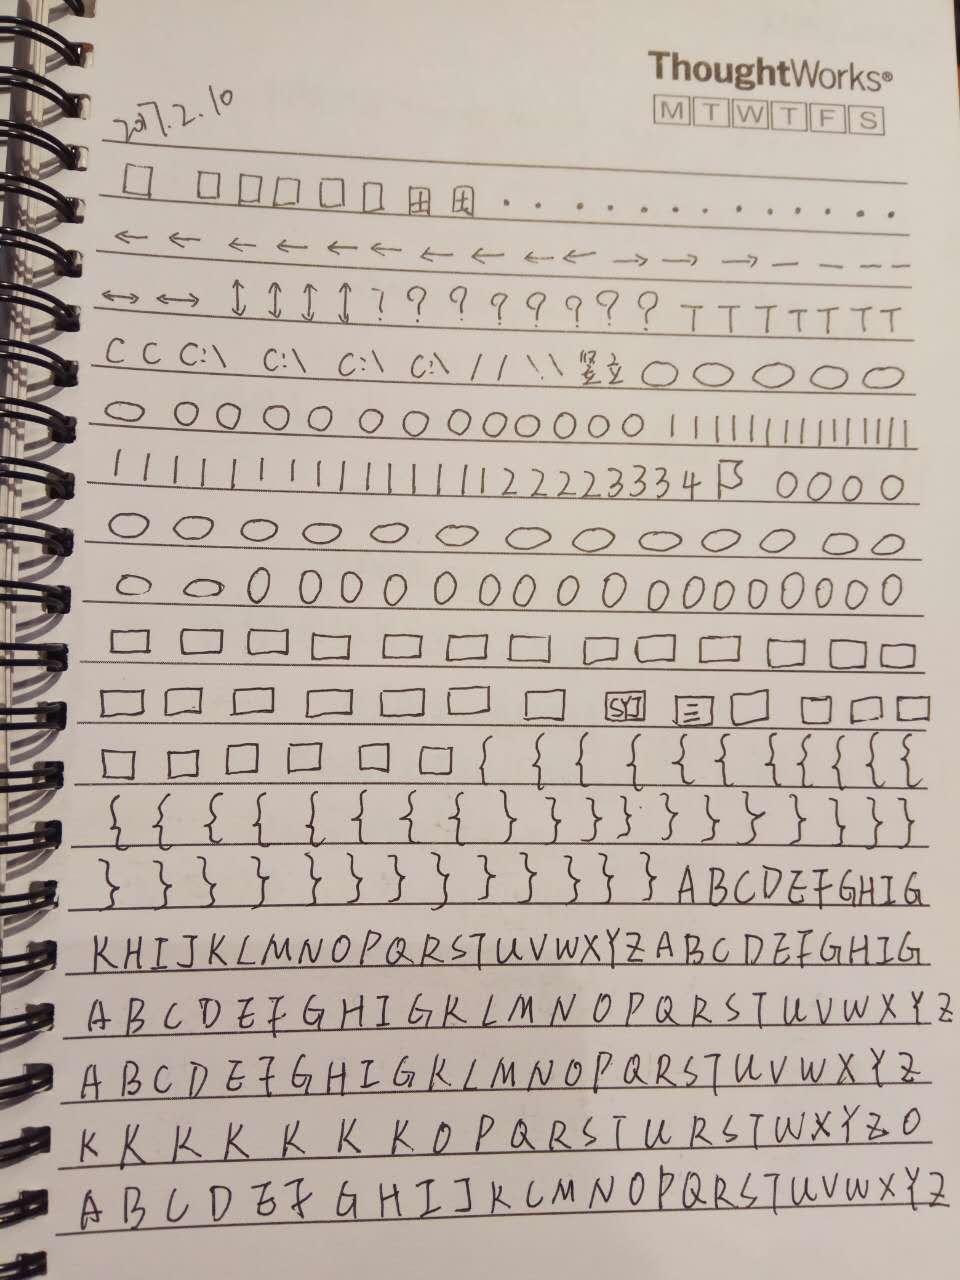 ThoughtWorks®
M T W T F S
2017.2.10
□ □ □ □ □ □ 田 . . . . . . . . . . . . .
← ← ← ← ← ← ← ← ← ← → → → — — — —
↔ ↔ ↕ ↕ ↕ ↕ ? ? ? ? ? ? ? ? T T T T T T T
C C C:\ C:\ C:\ C:\ / / \ \ 竖 立 ○ ○ ○ ○ ○
○ ○ ○ ○ ○ ○ ○ ○ ○ ○ ○ ○ ○ | | | | | | | | | | | | | | |
| | | | | | | | | | | | | | 2 2 2 2 3 3 3 4 ○ ○ ○ ○
○ ○ ○ ○ ○ ○ ○ ○ ○ ○ ○ ○ ○
○ ○ 0 0 0 0 0 0 0 0 0 0 0 0 0 0 0 0
□ □ □ □ □ □ □ □ □ □ □ □ □
□ □ □ □ □ □ □ SYJ 三 □ □ □ □
□ □ □ □ □ □ { { { { { { { { { { {
{ { { { { { { { } } } } } } } } } } }
} } } } } } } } } } } } } A B C D E F G H I G
K H I J K L M N O P Q R S T U V W X Y Z A B C D E F G H I G
A B C D E F G H I G K L M N O P Q R S T U V W X Y Z
A B C D E F G H I G K L M N O P Q R S T U V W X Y Z
K K K K K K K O P Q R S T U R S T W X Y Z O
A B C D E F G H I J K L M N O P Q R S T U V W X Y Z